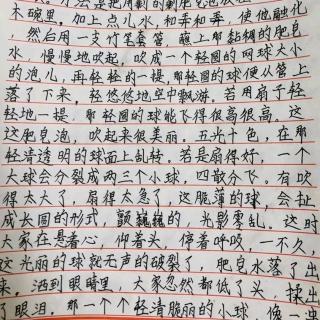 木碗里。加上点儿水，和弄和弄，使他融化
然后用一支竹笔套管，蘸上那黏稠的肥皂
水，慢慢地吹起，吹成一个轻圆的网球大小
的泡儿，再轻轻的一提，那轻圆的球便从管上
落了下来，轻悠悠地空中飘游。若用扇子轻
轻地一提，那轻圆的球能飞得很高很高。这
这肥皂泡，吹起来很美丽，五光十色，在那
轻清透明的球面上乱转。若是扇得好，一个
大球会分裂成两三个小球，四散分飞。有吹
得太大了，扇得太急了，这脆薄的球，会扯
成长圆的形式 颤巍巍的，光影零乱。这时
大家在悬着心，仰着头，停着呼吸，一不久，
这光丽的球就无声的破裂了，肥皂水落了出
来 洒到眼睛里，大家忽然都低了头，揉出
了眼泪。那一个个轻清脆丽的小球，像一